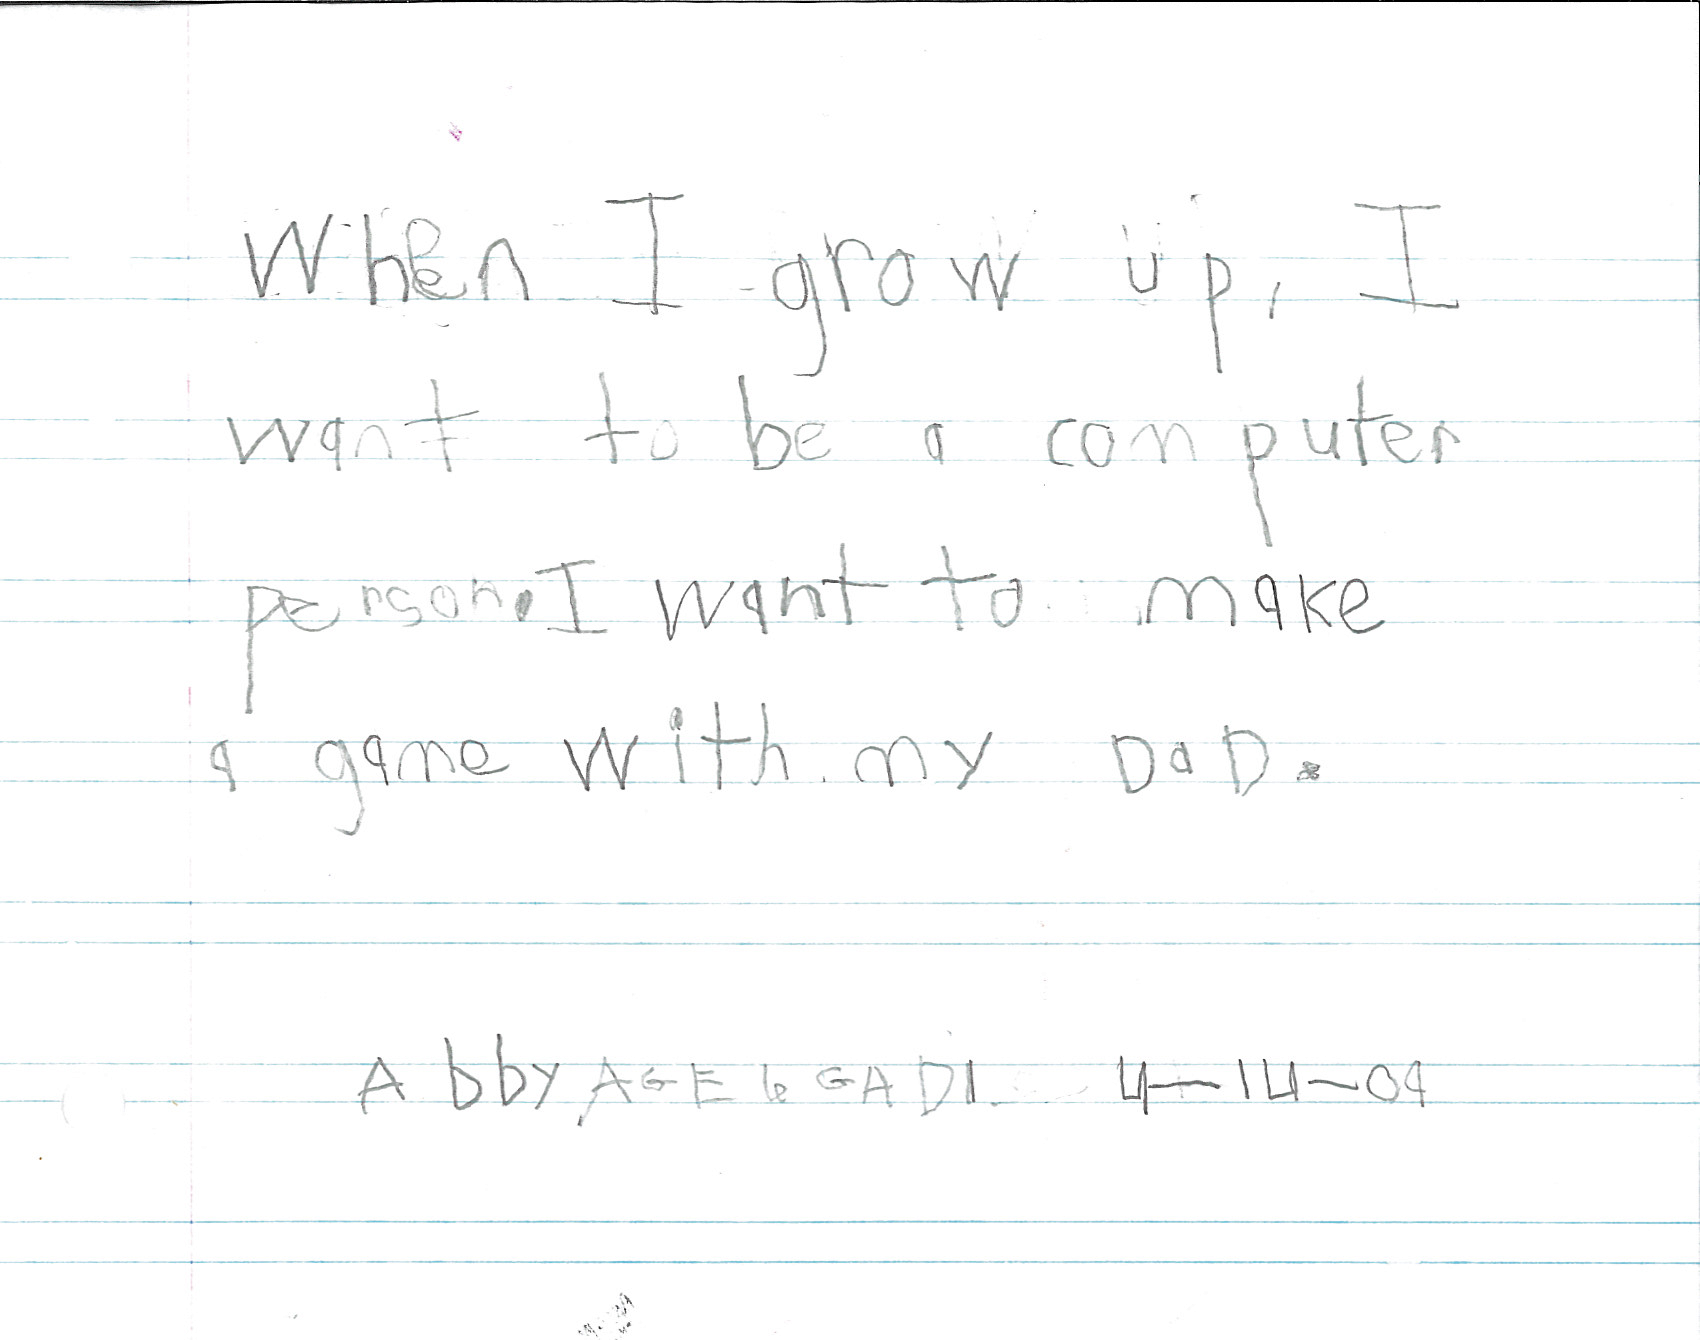 When I grow up, I
want to be a computer
person. I want to make
a game with my DaD.
Abby AGE 6 GAD1 4-14-09